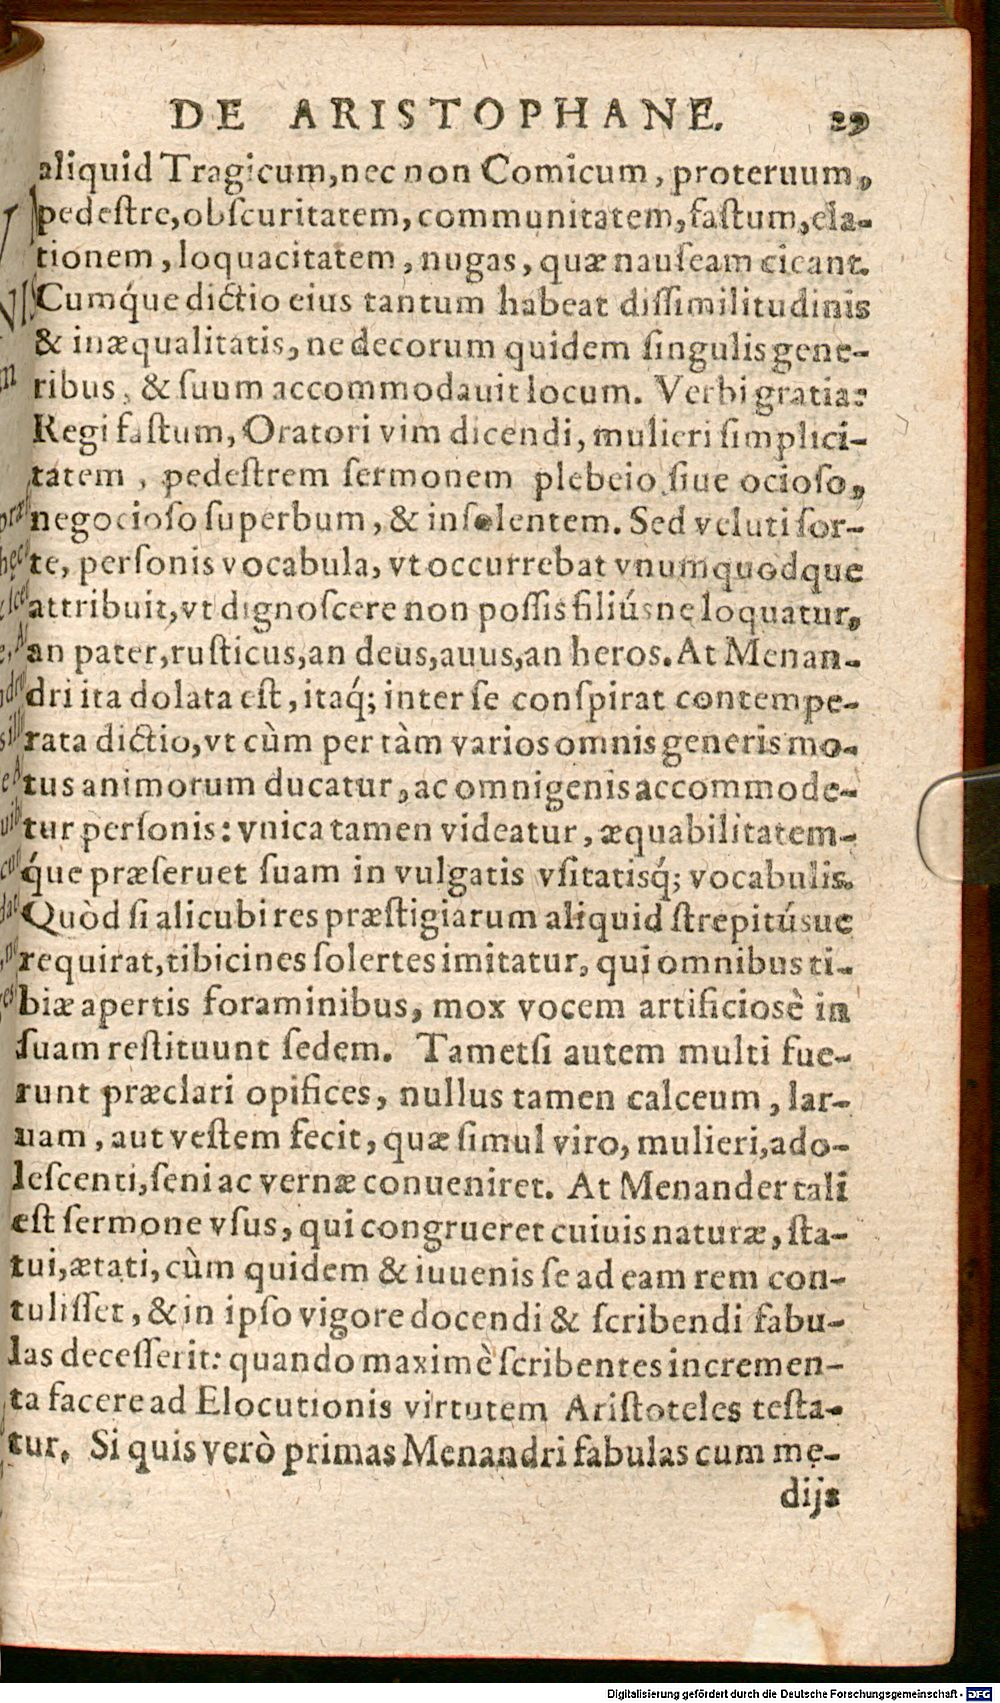 DE ARISTOPHANE. 29
aliquid Tragicum, nec non Comicum, proteruum,
pedeſtre, obſcuritatem, communitatem, faſtum, ela-
tionem, loquacitatem, nugas, quæ nauſeam cieant.
Cumq́ue dictio eius tantum habeat diſſimilitudinis
& inæqualitatis, ne decorum quidem ſingulis gene-
ribus, & ſuum accommodauit locum. Verbi gratia:
Regi faſtum, Oratori vim dicendi, mulieri ſimplici-
tatem, pedeſtrem ſermonem plebeio ſiue ocioſo,
negocioſo ſuperbum, & inſolentem. Sed veluti ſor-
te, perſonis vocabula, vt occurrebat vnumquodque
attribuit, vt dignoſcere non poſſis filiúsne loquatur,
an pater, ruſticus, an deus, auus, an heros. At Menan-
dri ita dolata eſt, itaq́; inter ſe conſpirat contempe-
rata dictio, vt cùm per tàm varios omnis generis mo-
tus animorum ducatur, ac omnigenis accommode-
tur perſonis: vnica tamen videatur, æquabilitatem-
q́ue præſeruet ſuam in vulgatis vſitatisq́; vocabulis.
Quòd ſi alicubi res præſtigiarum aliquid ſtrepitúsue
requirat, tibicines ſolertes imitatur, qui omnibus ti-
biæ apertis foraminibus, mox vocem artificiosè in
ſuam reſtituunt ſedem. Tametſi autem multi fue-
runt præclari opifices, nullus tamen calceum, lar-
uam, aut veſtem fecit, quæ ſimul viro, mulieri, ado-
leſcenti, ſeni ac vernæ conueniret. At Menander tali
eſt ſermone vſus, qui congrueret cuiuis naturæ, ſta-
tui, ætati, cùm quidem & iuuenis ſe ad eam rem con-
tuliſſet, & in ipſo vigore docendi & ſcribendi fabu-
las deceſſerit: quando maximè ſcribentes incremen-
ta facere ad Elocutionis virtutem Ariſtoteles teſta-
tur. Si quis verò primas Menandri fabulas cum me-
dijs
Digitalisierung gefördert durch die Deutsche Forschungsgemeinschaft - DFG